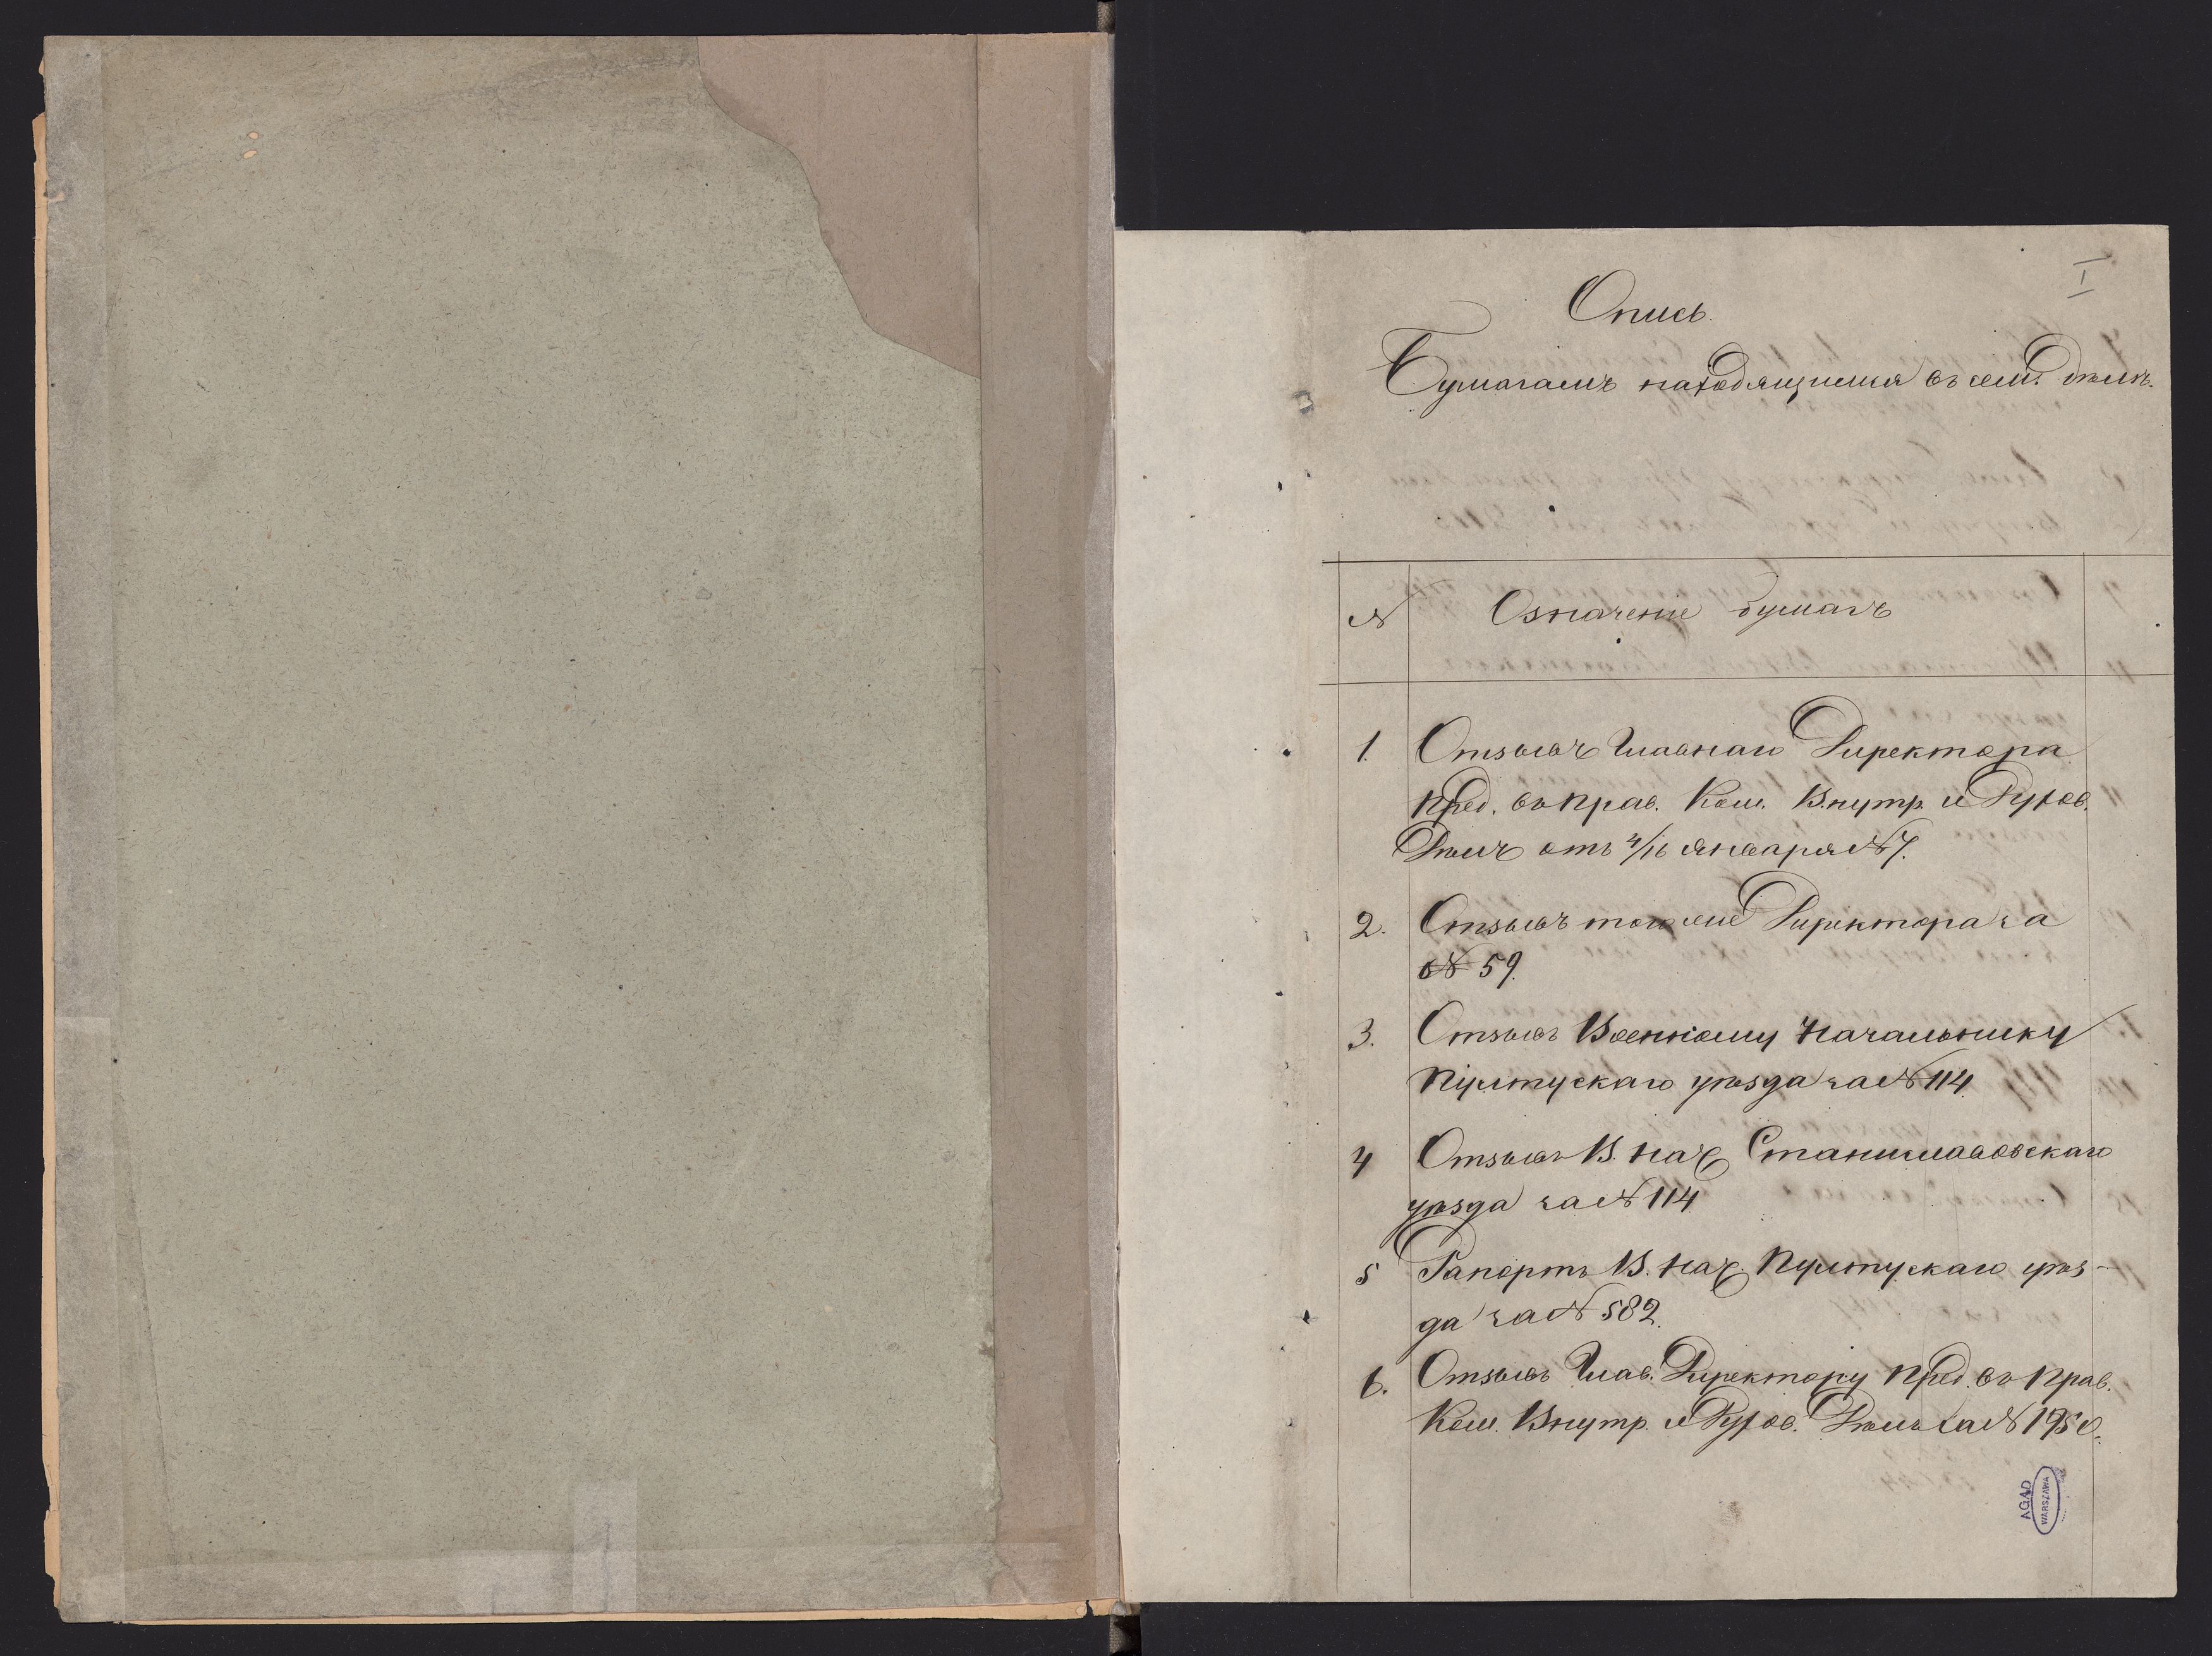 I
Опись.
Бумагамъ находящимся въ семъ дѣлѣ.
№ Означеніе бумагъ
1. Отзывъ Главнаго Директора
Пред. въ Прав. Ком. Внутр. и Духов.
Дѣлъ отъ 4/16 Января №7.
2. Отзывъ того же Директора за
№ 59.
3. Отзывъ Военному Начальнику
Пултускаго уѣзда за № 114
4 Отзывъ В. Нач. Станиславовскаго
уѣзда за № 114
5 Рапортъ В. Нач. Пултускаго уѣз-
да за № 582.
6. Отзывъ Глав. Директору Пред. въ Прав.
Ком. Внутр. и Духов. Дѣлъ за №
AGAD
WARSZAWA